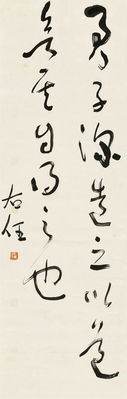 君子深造之以道
欲其自得之也
右任